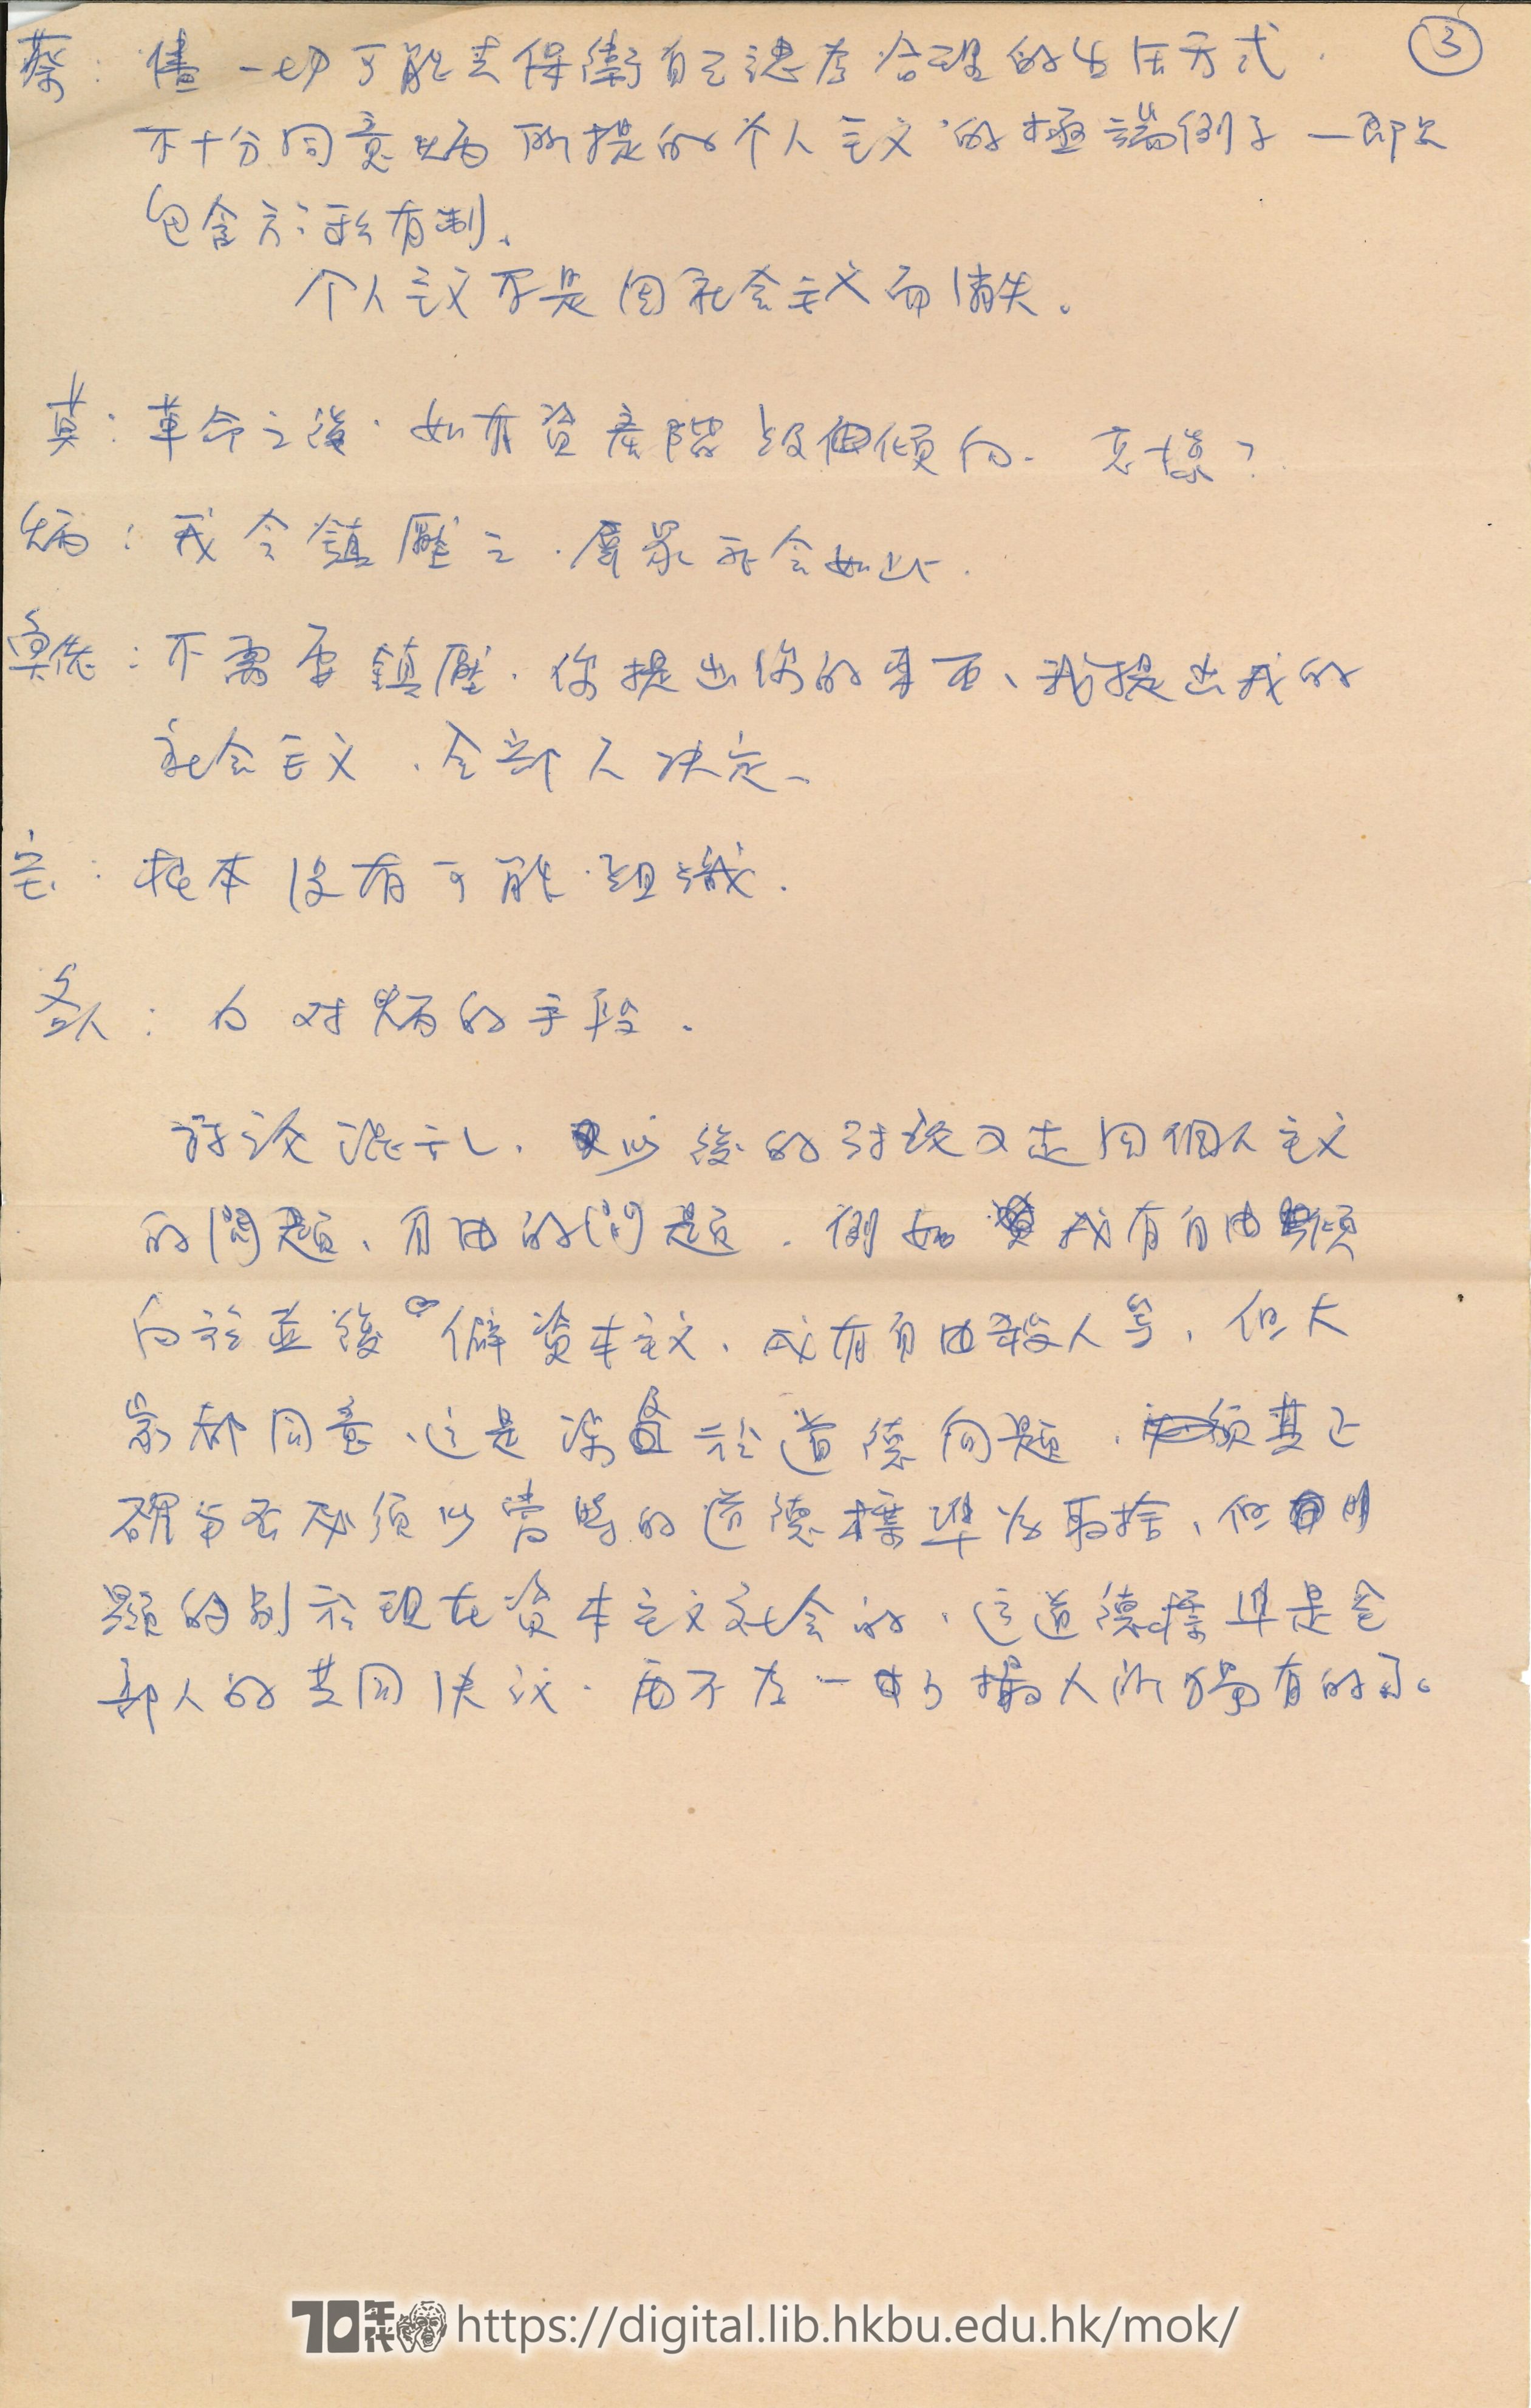 ③
蔡：儘一切可能去保衛自己認為合理的生活方式．
不十分同意炳所提的个人主义的極端例子—即是
包含了私有制．
个人主义不是因社会主义而消失。
莫：革命之後．如有資產階級傾向．怎樣？
炳：我会鎮壓之．羣眾亦会如此．
：不需要鎮壓．你提出你的東西、我提出我的
社会主义．全部人决定．
：根本没有可能組織．
各人：反对炳的手段．
討论混乱．以後的討论又走回個人主义
的問題、自由的問題．例如我有自由傾
向於資本主义．我有自由殺人等．但大
家都同意、这是涉及於道德問題．其正
確与否必須以當時的道德標準为取捨、但明
顯的別於現在資本主义社会的．这道德標準是全
部人的共同决议．而不为一小撮人所獨有的了。
70年代 https://digital.lib.hkbu.edu.hk/mok/